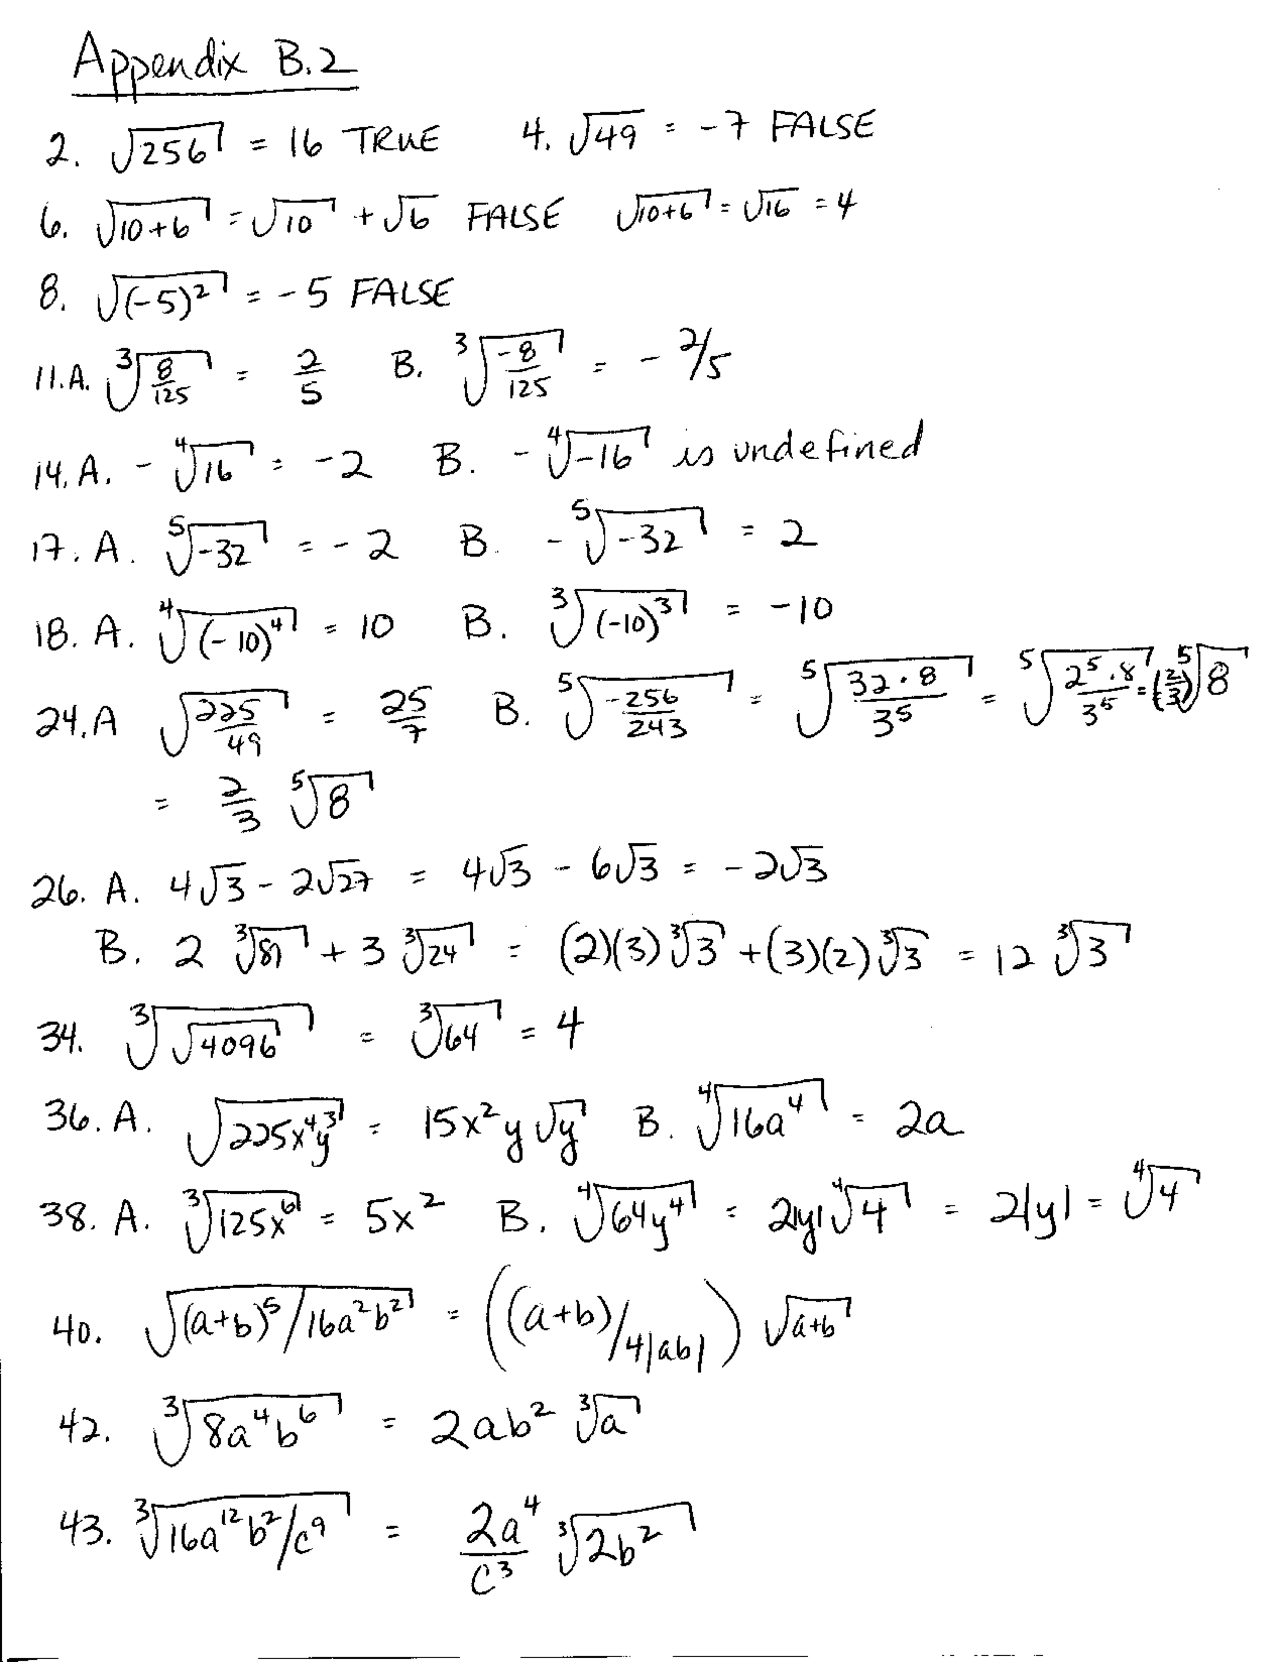 Appendix B.2
2. √256 = 16 TRUE 4. √49 = -7 FALSE
6. √(10+6) = √10 + √6 FALSE √(10+6) = √16 = 4
8. √((-5)²) = -5 FALSE
11.A. ∛(8/125) = 2/5 B. ∛(-8/125) = - 2/5
14.A. - ∜16 = -2 B. - ∜(-16) is undefined
17.A. ⁵√(-32) = -2 B. - ⁵√(-32) = 2
18. A. ∜((-10)⁴) = 10 B. ∛((-10)³) = -10
24.A √(225/49) = 25/7 B. ⁵√(-256/243) = ⁵√((32·8)/3⁵) = ⁵√((2⁵·8)/3⁵) = (2/3) ⁵√8
= 2/3 ⁵√8
26. A. 4√3 - 2√27 = 4√3 - 6√3 = -2√3
B. 2 ∛81 + 3 ∛24 = (2)(3) ∛3 + (3)(2) ∛3 = 12 ∛3
34. ∛(√4096) = ∛64 = 4
36. A. √(225x⁴y³) = 15x²y √y B. ∜(16a⁴) = 2a
38. A. ∛(125x⁶) = 5x² B. ∜(64y⁴) = 2|y| ∜4 = 2|y| = ∜4
40. √((a+b)⁵/16a²b²) = ((a+b)/4|ab|) √(a+b)
42. ∛(8a⁴b⁶) = 2ab² ∛a
43. ∛(16a¹²b²/c⁹) = 2a⁴/c³ ∛(2b²)